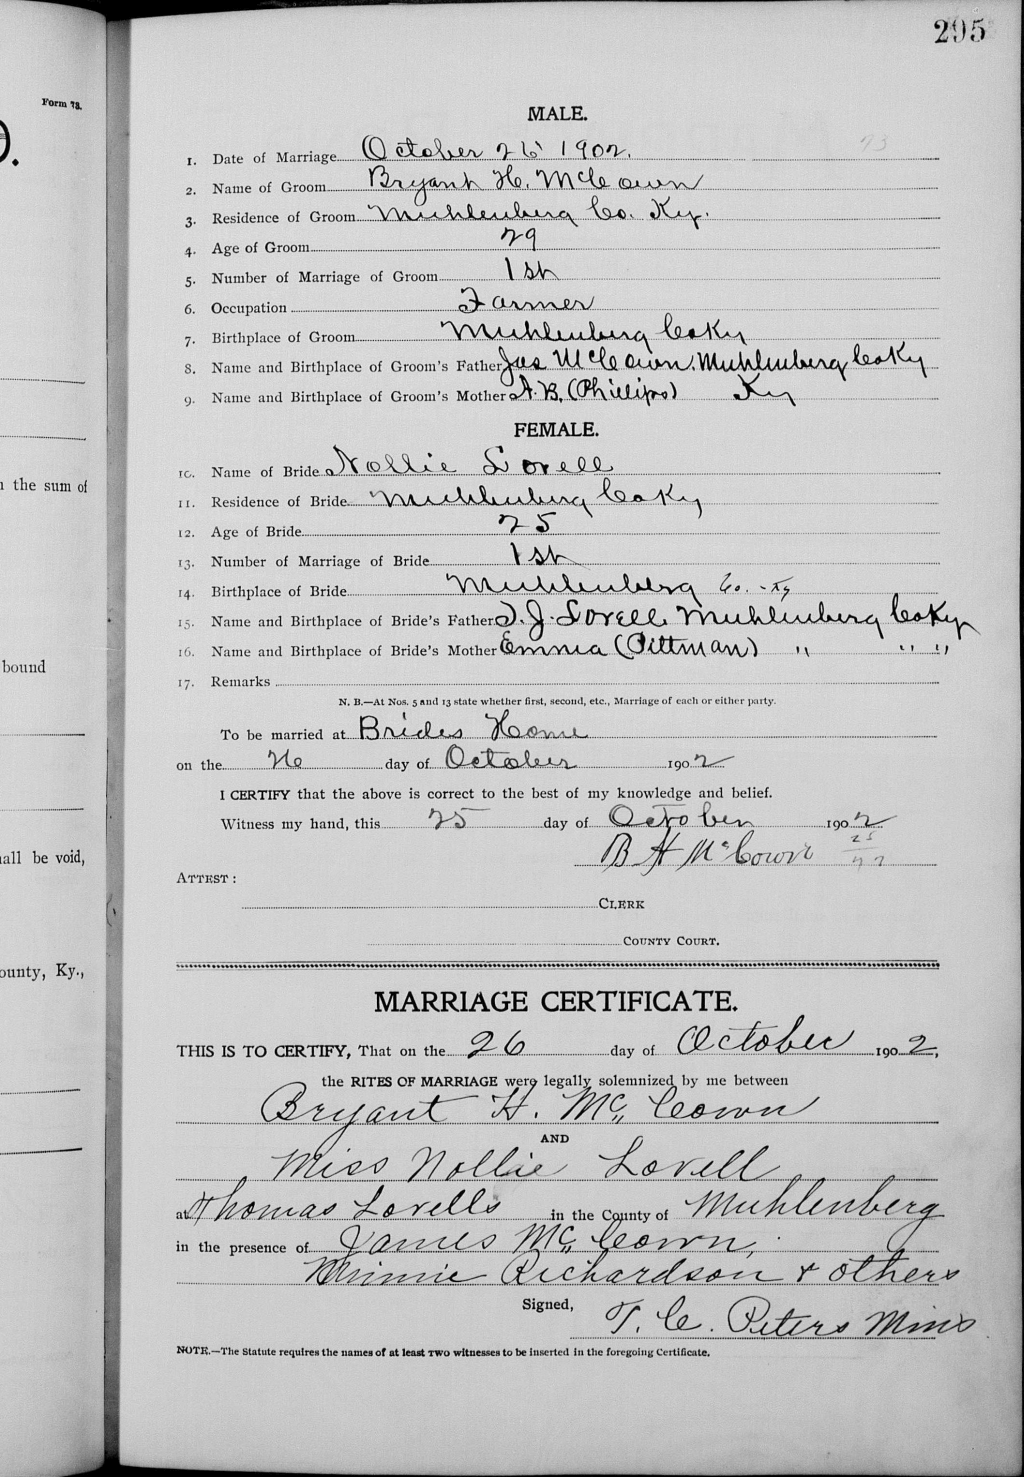 295
Form 78.
MALE.
1. Date of Marriage October 26 1902.
2. Name of Groom Bryant H. McCown
3. Residence of Groom Muhlenberg Co. Ky.
4. Age of Groom 29
5. Number of Marriage of Groom 1st
6. Occupation Farmer
7. Birthplace of Groom Muhlenberg Co Ky
8. Name and Birthplace of Groom's Father Jas McCown. Muhlenberg Co Ky
9. Name and Birthplace of Groom's Mother A. B. (Phillips) Ky
FEMALE.
10. Name of Bride Nollie Lovell
11. Residence of Bride Muhlenberg Co Ky
12. Age of Bride 25
13. Number of Marriage of Bride 1st
14. Birthplace of Bride Muhlenberg Co. - Ky
15. Name and Birthplace of Bride's Father T. J. Lovell Muhlenberg Co Ky
16. Name and Birthplace of Bride's Mother Emma (Pittman) " " "
17. Remarks
N. B.—At Nos. 5 and 13 state whether first, second, etc., Marriage of each or either party.
To be married at Brides Home
on the 26 day of October 1902
I CERTIFY that the above is correct to the best of my knowledge and belief.
Witness my hand, this 25 day of October 1902
B H McCown
ATTEST:
CLERK
COUNTY COURT.
MARRIAGE CERTIFICATE.
THIS IS TO CERTIFY, That on the 26 day of October 1902,
the RITES OF MARRIAGE were legally solemnized by me between
Bryant H. McCown
AND
Miss Nollie Lovell
at Thomas Lovells in the County of Muhlenberg
in the presence of James McCown,
Minnie Richardson & others
Signed, T. C. Peters Mins
NOTE.—The Statute requires the names of at least TWO witnesses to be inserted in the foregoing Certificate.
the sum of
bound
all be void,
ounty, Ky.,